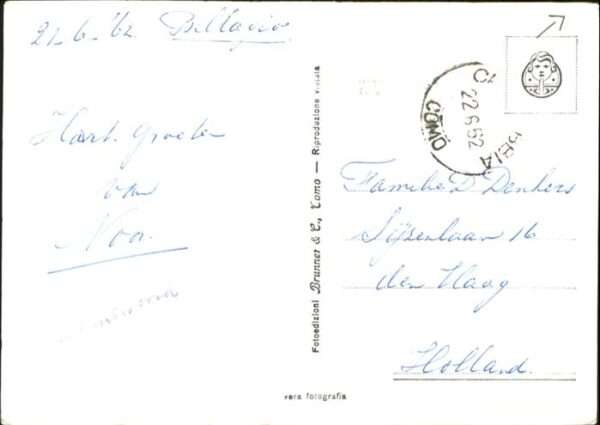 21-6-'62 Bellagio
Hart. groeten
van
Noor.
Fotoedizioni Brunner & C., Como — Riproduzione vietata
vera fotografia
COMO
22.6.62
Familie D. Denkers
16
den Haag
Holland.